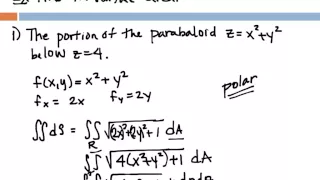 1) The portion of the paraboloid z = x²+y²
below z=4.
f(x,y) = x²+y²
polar
fx = 2x fy = 2y
∬dS = ∬ √(2x)²+(2y)²+1 dA
R
∬ √4(x²+y²)+1 dA